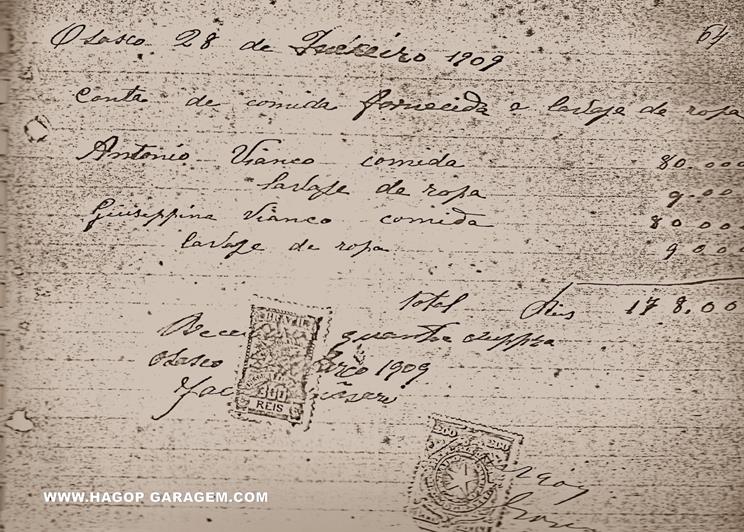 Osasco 28 de Feverciro 1909
64
Conta de comida fornecida e lavaje de ropa
Antonio Vianco comida 80.000
lavaje de ropa 9.00
Guiseppina Vianco comida 80.000
lavaje de ropa 9.000
total Reis 178.00
quantia suppra
Osasco 1909
BRAZIL
300
REIS
300 300
WWW.HAGOP GARAGEM.COM